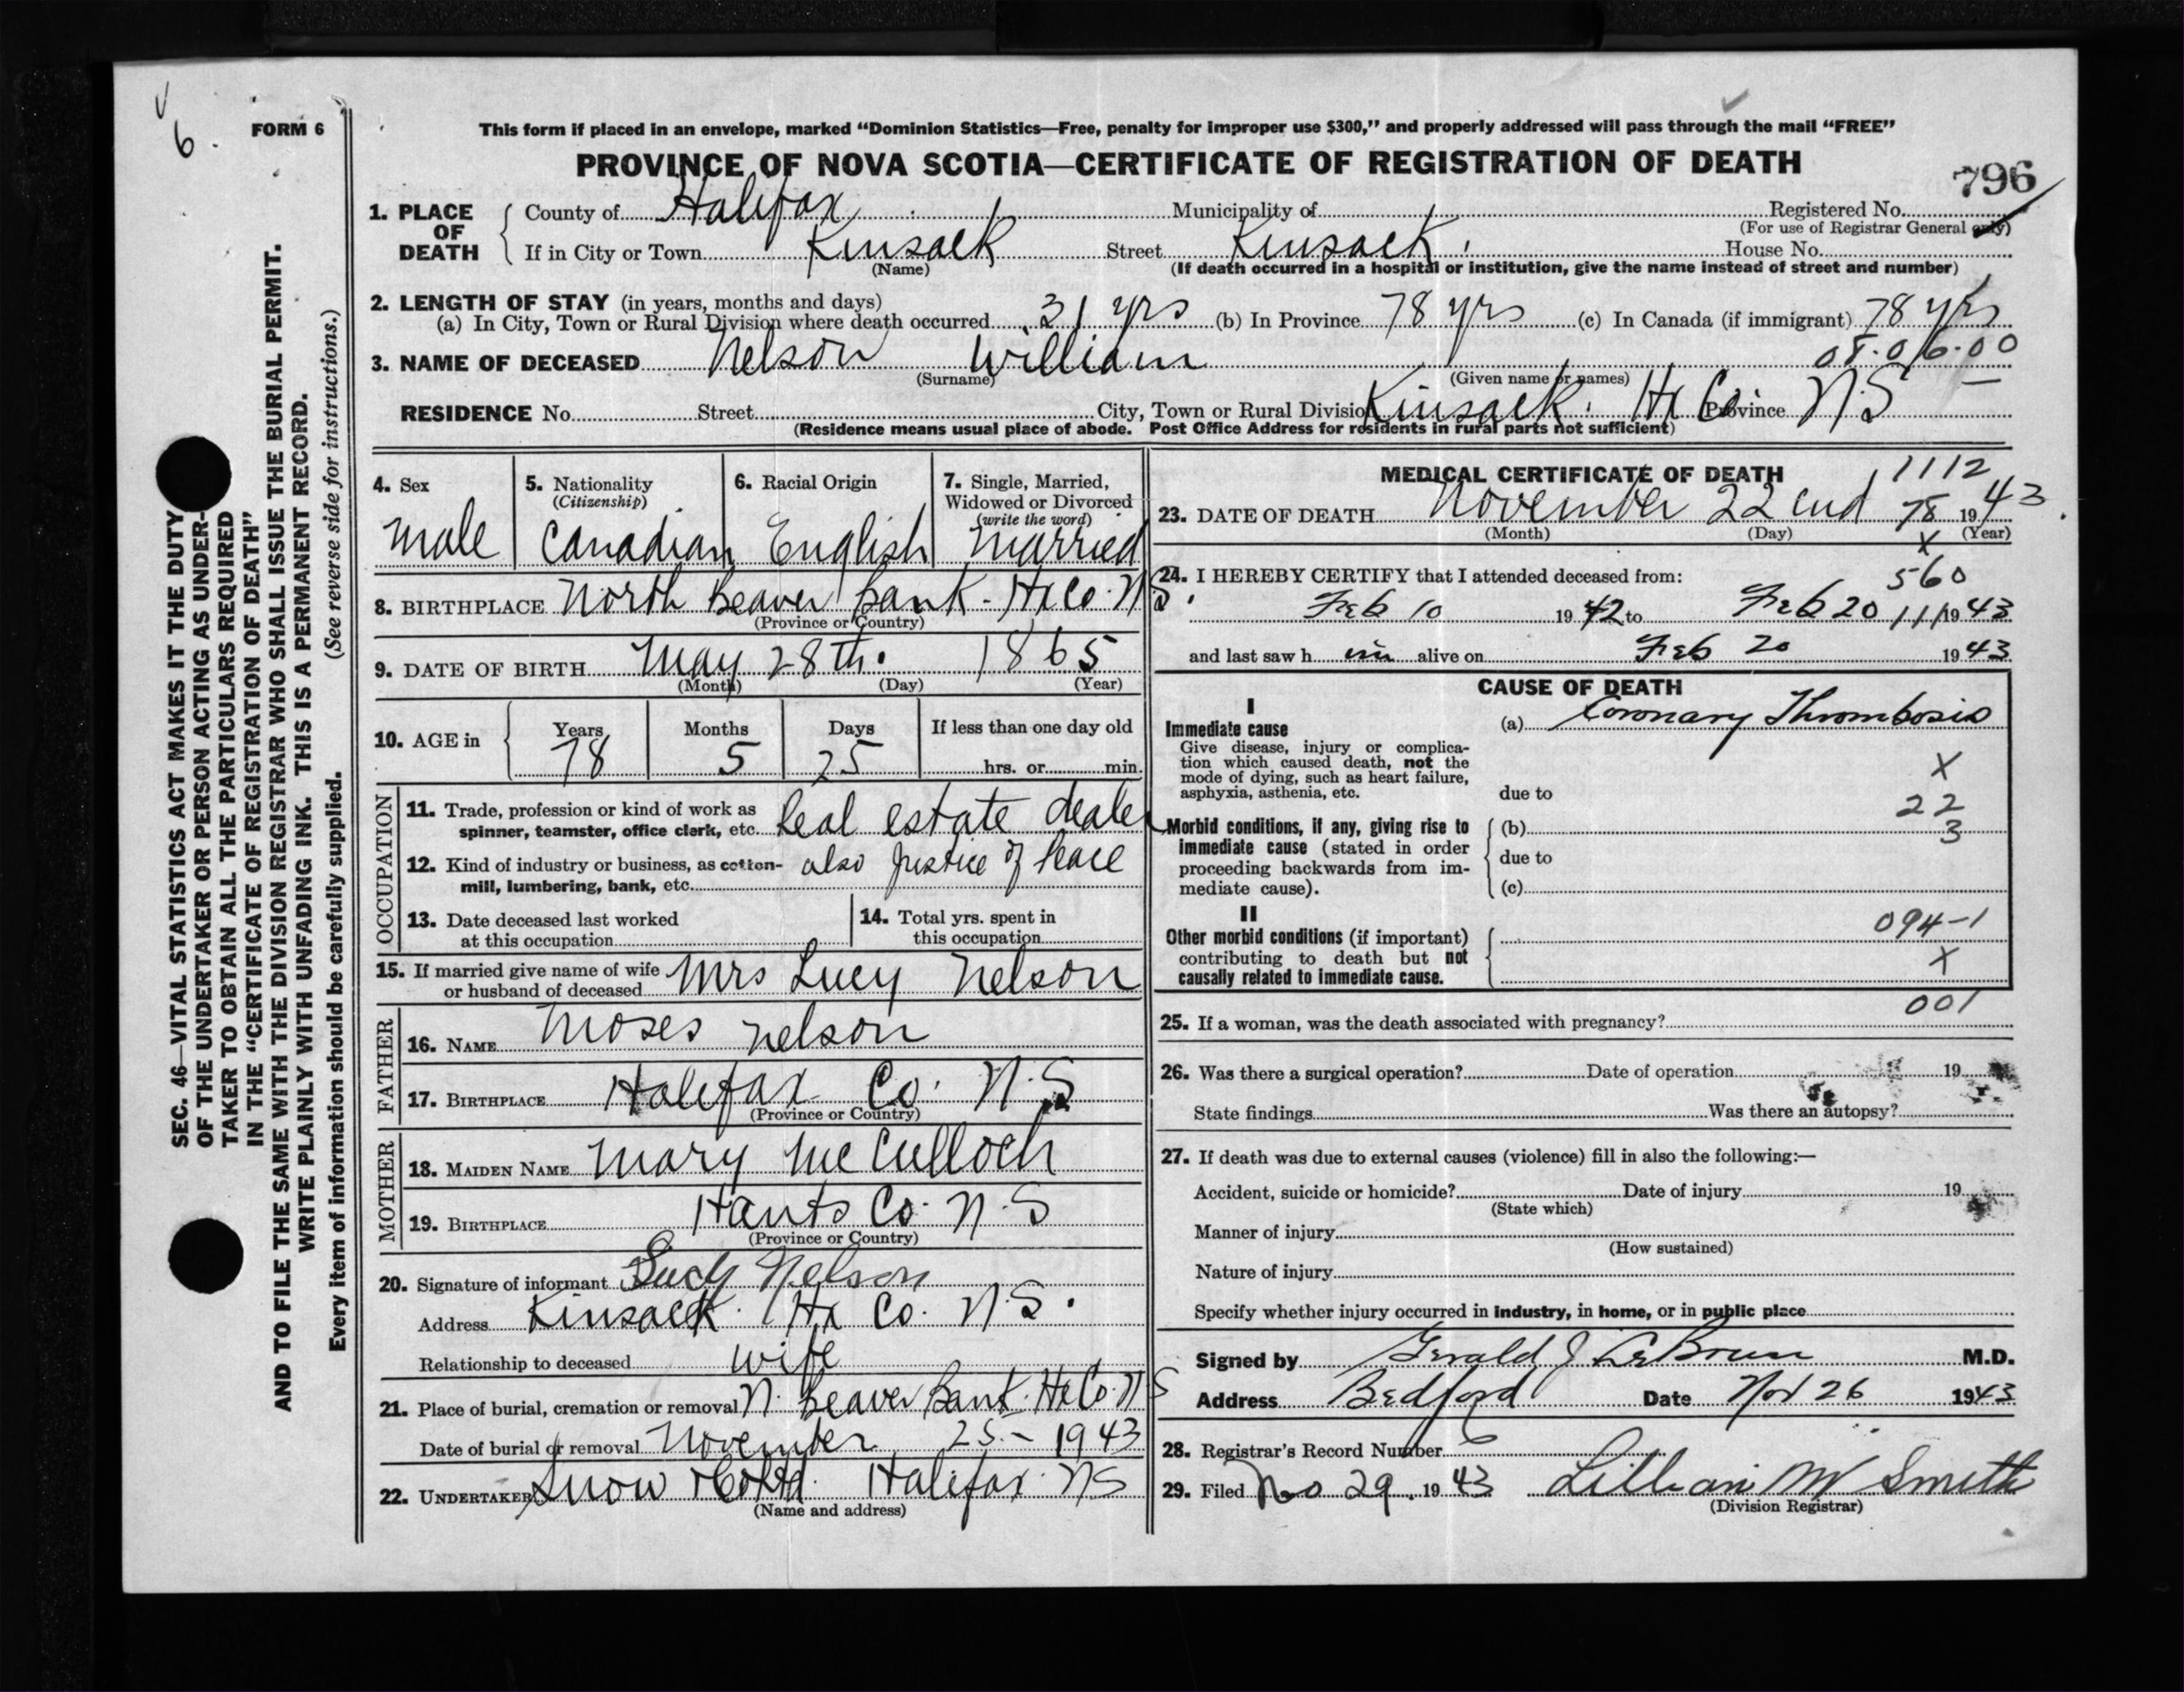 6.
FORM 6
This form if placed in an envelope, marked “Dominion Statistics—Free, penalty for improper use $300,” and properly addressed will pass through the mail “FREE”
PROVINCE OF NOVA SCOTIA—CERTIFICATE OF REGISTRATION OF DEATH
796
1. PLACE OF DEATH
County of Halifax Municipality of Registered No.
(For use of Registrar General only)
If in City or Town Kinsack Street Kinsack House No.
(Name) (If death occurred in a hospital or institution, give the name instead of street and number)
2. LENGTH OF STAY (in years, months and days)
(a) In City, Town or Rural Division where death occurred 31 yrs (b) In Province 78 yrs (c) In Canada (if immigrant) 78 yrs
08.06.00
3. NAME OF DECEASED Nelson William
(Surname) (Given name or names)
RESIDENCE No. Street City, Town or Rural Division Kinsack. Hx Co. Province N.S
(Residence means usual place of abode. Post Office Address for residents in rural parts not sufficient)
4. Sex male
5. Nationality (Citizenship) Canadian
6. Racial Origin English
7. Single, Married, Widowed or Divorced (write the word) Married
8. BIRTHPLACE North Beaver Bank - Hx Co. N S.
(Province or Country)
9. DATE OF BIRTH May 28th. 1865
(Month) (Day) (Year)
10. AGE in Years 78 Months 5 Days 25 If less than one day old
hrs. or min.
OCCUPATION
11. Trade, profession or kind of work as spinner, teamster, office clerk, etc. Real estate dealer
12. Kind of industry or business, as cotton-mill, lumbering, bank, etc. also Justice of Peace
13. Date deceased last worked at this occupation
14. Total yrs. spent in this occupation
15. If married give name of wife or husband of deceased Mrs Lucy Nelson
FATHER
16. NAME Moses Nelson
17. BIRTHPLACE Halifax Co. N.S
(Province or Country)
MOTHER
18. MAIDEN NAME Mary McCulloch
19. BIRTHPLACE Hants Co. N.S
(Province or Country)
20. Signature of informant Lucy Nelson
Address Kinsack. Hx Co. N.S.
Relationship to deceased wife
21. Place of burial, cremation or removal N. Beaver Bank. Hx Co. N S
Date of burial or removal November 25 - 1943
22. UNDERTAKER Snow & Co Ltd. Halifax. NS
(Name and address)
MEDICAL CERTIFICATE OF DEATH
1112
23. DATE OF DEATH November 22 78 1943.
(Month) (Day) (Year)
X
24. I HEREBY CERTIFY that I attended deceased from: 560
Feb 10 1942 to Feb 20 11/1943
and last saw h im alive on Feb 20 1943
CAUSE OF DEATH
I
Immediate cause
Give disease, injury or complication which caused death, not the mode of dying, such as heart failure, asphyxia, asthenia, etc.
(a) Coronary Thrombosis
X
due to
22
Morbid conditions, if any, giving rise to immediate cause (stated in order proceeding backwards from immediate cause).
(b) 3
due to
(c)
II
Other morbid conditions (if important) contributing to death but not causally related to immediate cause.
094-1
X
001
25. If a woman, was the death associated with pregnancy?
26. Was there a surgical operation? Date of operation 19
State findings Was there an autopsy?
27. If death was due to external causes (violence) fill in also the following:—
Accident, suicide or homicide? Date of injury 19
(State which)
Manner of injury
(How sustained)
Nature of injury
Specify whether injury occurred in industry, in home, or in public place
Signed by Gerald J LeBrun M.D.
Address Bedford Date Nov 26 1943
28. Registrar's Record Number 6
29. Filed No 29. 1943 Lillian M Smith
(Division Registrar)
SEC. 46—VITAL STATISTICS ACT MAKES IT THE DUTY
OF THE UNDERTAKER OR PERSON ACTING AS UNDER-
TAKER TO OBTAIN ALL THE PARTICULARS REQUIRED
IN THE “CERTIFICATE OF REGISTRATION OF DEATH”
AND TO FILE THE SAME WITH THE DIVISION REGISTRAR WHO SHALL ISSUE THE BURIAL PERMIT.
WRITE PLAINLY WITH UNFADING INK. THIS IS A PERMANENT RECORD.
Every item of information should be carefully supplied. (See reverse side for instructions.)